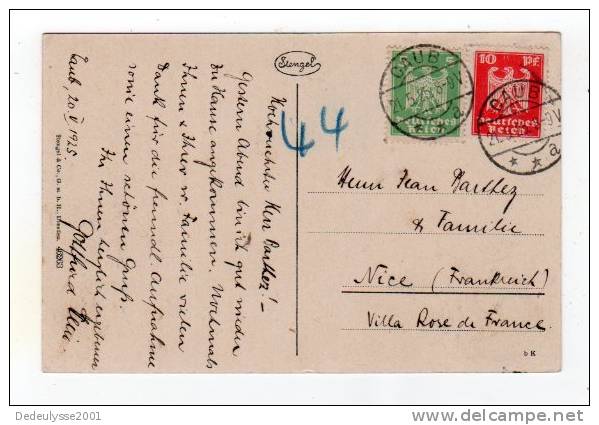 Stengel
Hochverehrter Herr Barthez! –
Gestern Abend bin ich gut wieder
zu Hause angekommen. Nochmals
Ihnen & Ihrer w. Familie vielen
Dank für die freundl. Aufnahme
sowie einen schönen Gruß.
Ihr Ihnen herzlich ergebener
Gottfried
Caub, 20. V 1925
Stengel & Co., G. m. b. H., Dresden
44
CAUB
Deutsches
Reich
10 Pf.
CAUB
a
Deutsches
Reich
Herrn Jean Barthez
& Familie
Nice (Frankreich)
Villa Rose de France.
b K
Dedeulysse2001
delcampe.net